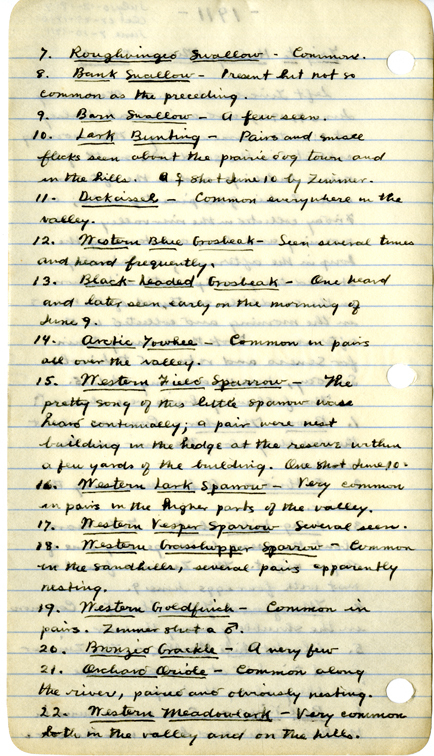 7. Roughwinged Swallow - Common.
8. Bank Swallow - Present but not so
common as the preceding.
9. Barn Swallow - A few seen.
10. Lark Bunting - Pairs and small
flocks seen about the prairie dog town and
in the hills. A ♀ shot June 10 by Zimmer.
11. Dickcissel - Common everywhere in the
valley.
12. Western Blue Grosbeak - Seen several times
and heard frequently.
13. Black-headed Grosbeak - One heard
and later seen, early on the morning of
June 9.
14. Arctic Towhee - Common in pairs
all over the valley.
15. Western Field Sparrow - The
pretty song of this little sparrow was
heard continually; a pair were nest
building in the hedge at the reserve within
a few yards of the building. One shot June 10.
16. Western Lark Sparrow - Very common
in pairs in the higher parts of the valley.
17. Western Vesper Sparrow Several seen.
18. Western Grasshopper Sparrow - Common
in the sandhills, several pairs apparently
nesting.
19. Western Goldfinch - Common in
pairs. Zimmer shot a ♂.
20. Bronzed Grackle - A very few
21. Orchard Oriole - Common along
the river, paired and obviously nesting.
22. Western Meadowlark - Very common
both in the valley and on the hills.